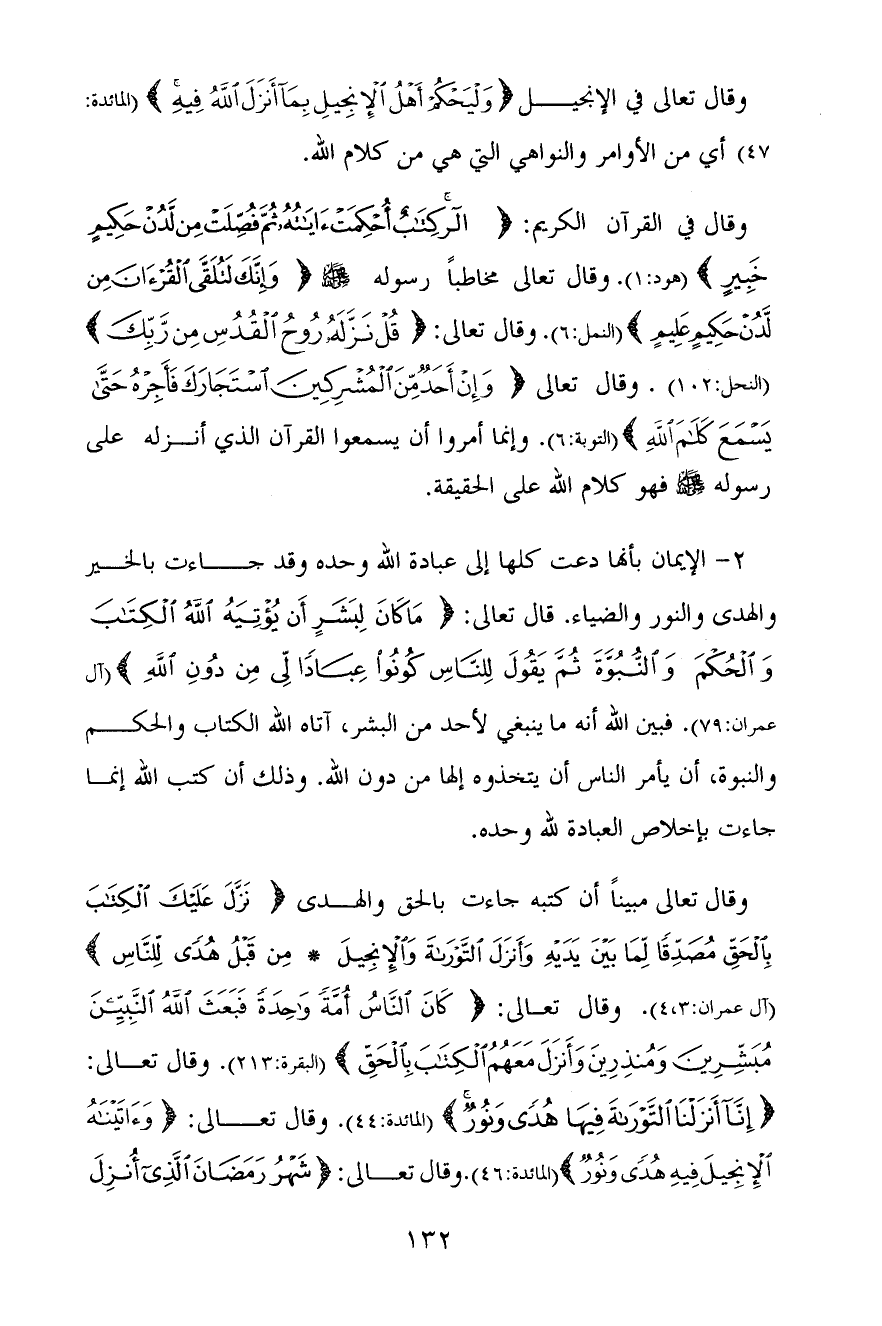 وقال تعالى في الإنجيـــــل ﴿ وَلْيَحْكُمْ أَهْلُ ٱلْإِنجِيلِ بِمَآ أَنزَلَ ٱللَّهُ فِيهِ ۚ ﴾ (المائدة:
٤٧) أي من الأوامر والنواهي التي هي من كلام الله.
وقال في القرآن الكريم: ﴿ الٓر ۚ كِتَٰبٌ أُحْكِمَتْ ءَايَٰتُهُۥ ثُمَّ فُصِّلَتْ مِن لَّدُنْ حَكِيمٍ
خَبِيرٍ ﴾ (هود:١). وقال تعالى مخاطباً رسوله ﷺ ﴿ وَإِنَّكَ لَتُلَقَّى ٱلْقُرْءَانَ مِن
لَّدُنْ حَكِيمٍ عَلِيمٍ ﴾ (النمل:٦). وقال تعالى: ﴿ قُلْ نَزَّلَهُۥ رُوحُ ٱلْقُدُسِ مِن رَّبِّكَ ﴾
(النحل:١٠٢) . وقال تعالى ﴿ وَإِنْ أَحَدٌ مِّنَ ٱلْمُشْرِكِينَ ٱسْتَجَارَكَ فَأَجِرْهُ حَتَّىٰ
يَسْمَعَ كَلَٰمَ ٱللَّهِ ﴾ (التوبة:٦). وإنما أمروا أن يسمعوا القرآن الذي أنـــزله على
رسوله ﷺ فهو كلام الله على الحقيقة.
٢- الإيمان بأنها دعت كلها إلى عبادة الله وحده وقد جـــــاءت بالخـــير
والهدى والنور والضياء. قال تعالى: ﴿ مَا كَانَ لِبَشَرٍ أَن يُؤْتِيَهُ ٱللَّهُ ٱلْكِتَٰبَ
وَٱلْحُكْمَ وَٱلنُّبُوَّةَ ثُمَّ يَقُولَ لِلنَّاسِ كُونُوا۟ عِبَادًا لِّى مِن دُونِ ٱللَّهِ ﴾ (آل
عمران:٧٩). فبين الله أنه ما ينبغي لأحد من البشر، آتاه الله الكتاب والحكـــــم
والنبوة، أن يأمر الناس أن يتخذوه إلها من دون الله. وذلك أن كتب الله إنمـا
جاءت بإخلاص العبادة لله وحده.
وقال تعالى مبيناً أن كتبه جاءت بالحق والهـــدى ﴿ نَزَّلَ عَلَيْكَ ٱلْكِتَٰبَ
بِٱلْحَقِّ مُصَدِّقًا لِّمَا بَيْنَ يَدَيْهِ وَأَنزَلَ ٱلتَّوْرَىٰةَ وَٱلْإِنجِيلَ * مِن قَبْلُ هُدًى لِّلنَّاسِ ﴾
(آل عمران:٤،٣). وقال تعـــالى: ﴿ كَانَ ٱلنَّاسُ أُمَّةً وَٰحِدَةً فَبَعَثَ ٱللَّهُ ٱلنَّبِيِّـۧنَ
مُبَشِّرِينَ وَمُنذِرِينَ وَأَنزَلَ مَعَهُمُ ٱلْكِتَٰبَ بِٱلْحَقِّ ﴾ (البقرة:٢١٣). وقال تعـــالى:
﴿ إِنَّآ أَنزَلْنَا ٱلتَّوْرَىٰةَ فِيهَا هُدًى وَنُورٌ ۚ ﴾ (المائدة:٤٤). وقال تعـــــالى: ﴿ وَءَاتَيْنَٰهُ
ٱلْإِنجِيلَ فِيهِ هُدًى وَنُورٌ ﴾ (المائدة:٤٦).وقال تعـــالى: ﴿ شَهْرُ رَمَضَانَ ٱلَّذِىٓ أُنزِلَ
١٣٢